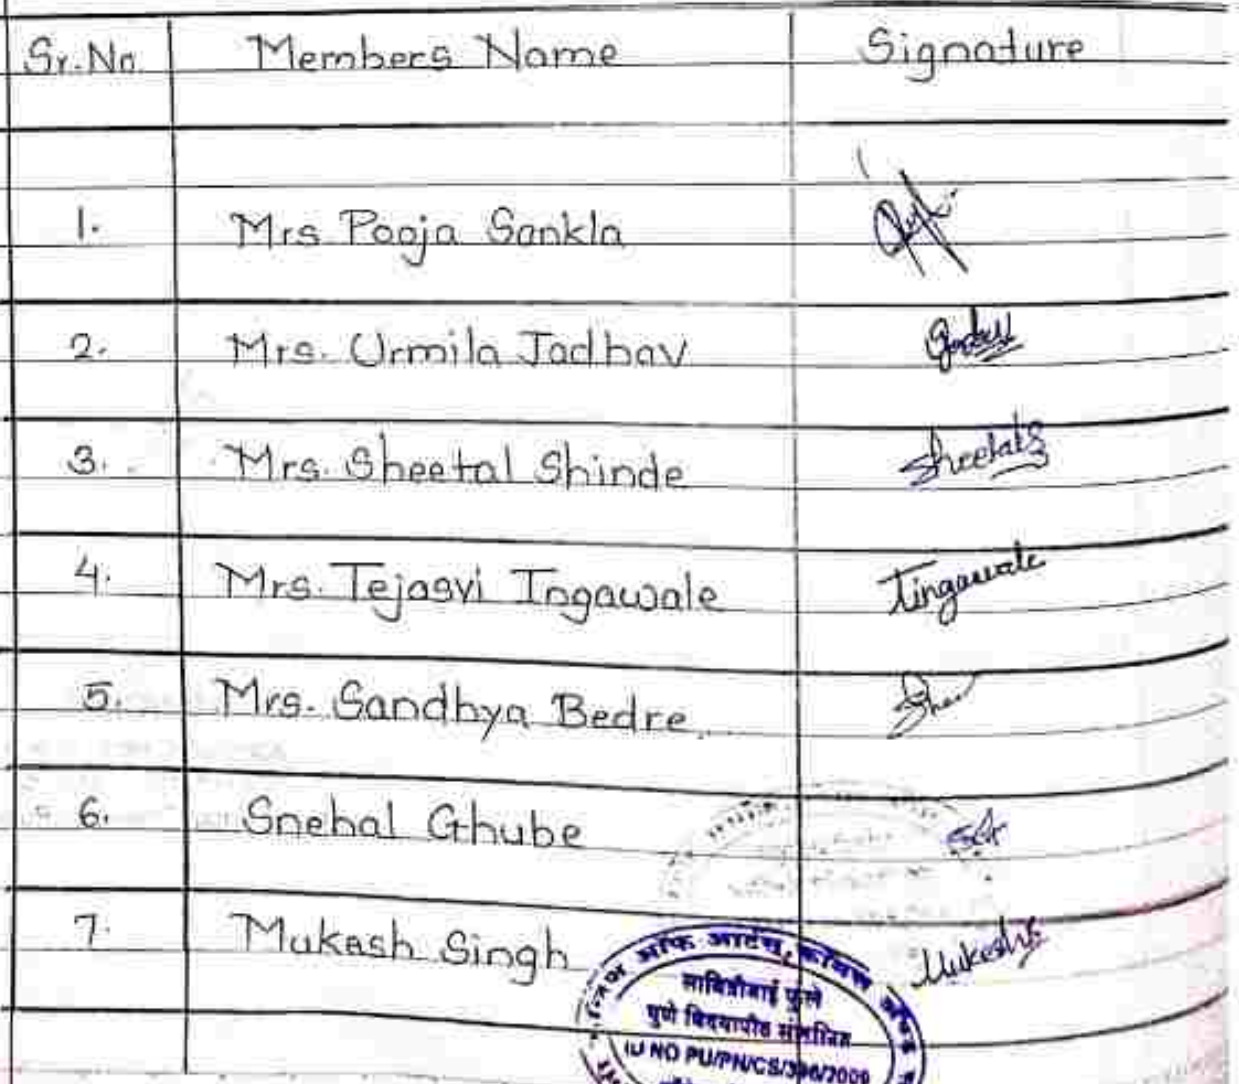 Sr.No. Members Name Signature
1. Mrs. Pooja Sankla
2. Mrs. Urmila Jadhav
3. Mrs. Sheetal Shinde Sheetals
4. Mrs. Tejasvi Ingawale Tingawale
5. Mrs. Sandhya Bedre
6. Snehal Ghube
7. Mukesh Singh Mukeshs
ऑफ आर्टस्, कॉमर्स
सावित्रीबाई फुले
पुणे विद्यापीठ संलग्नित
ID NO PU/PN/CS/396/2009